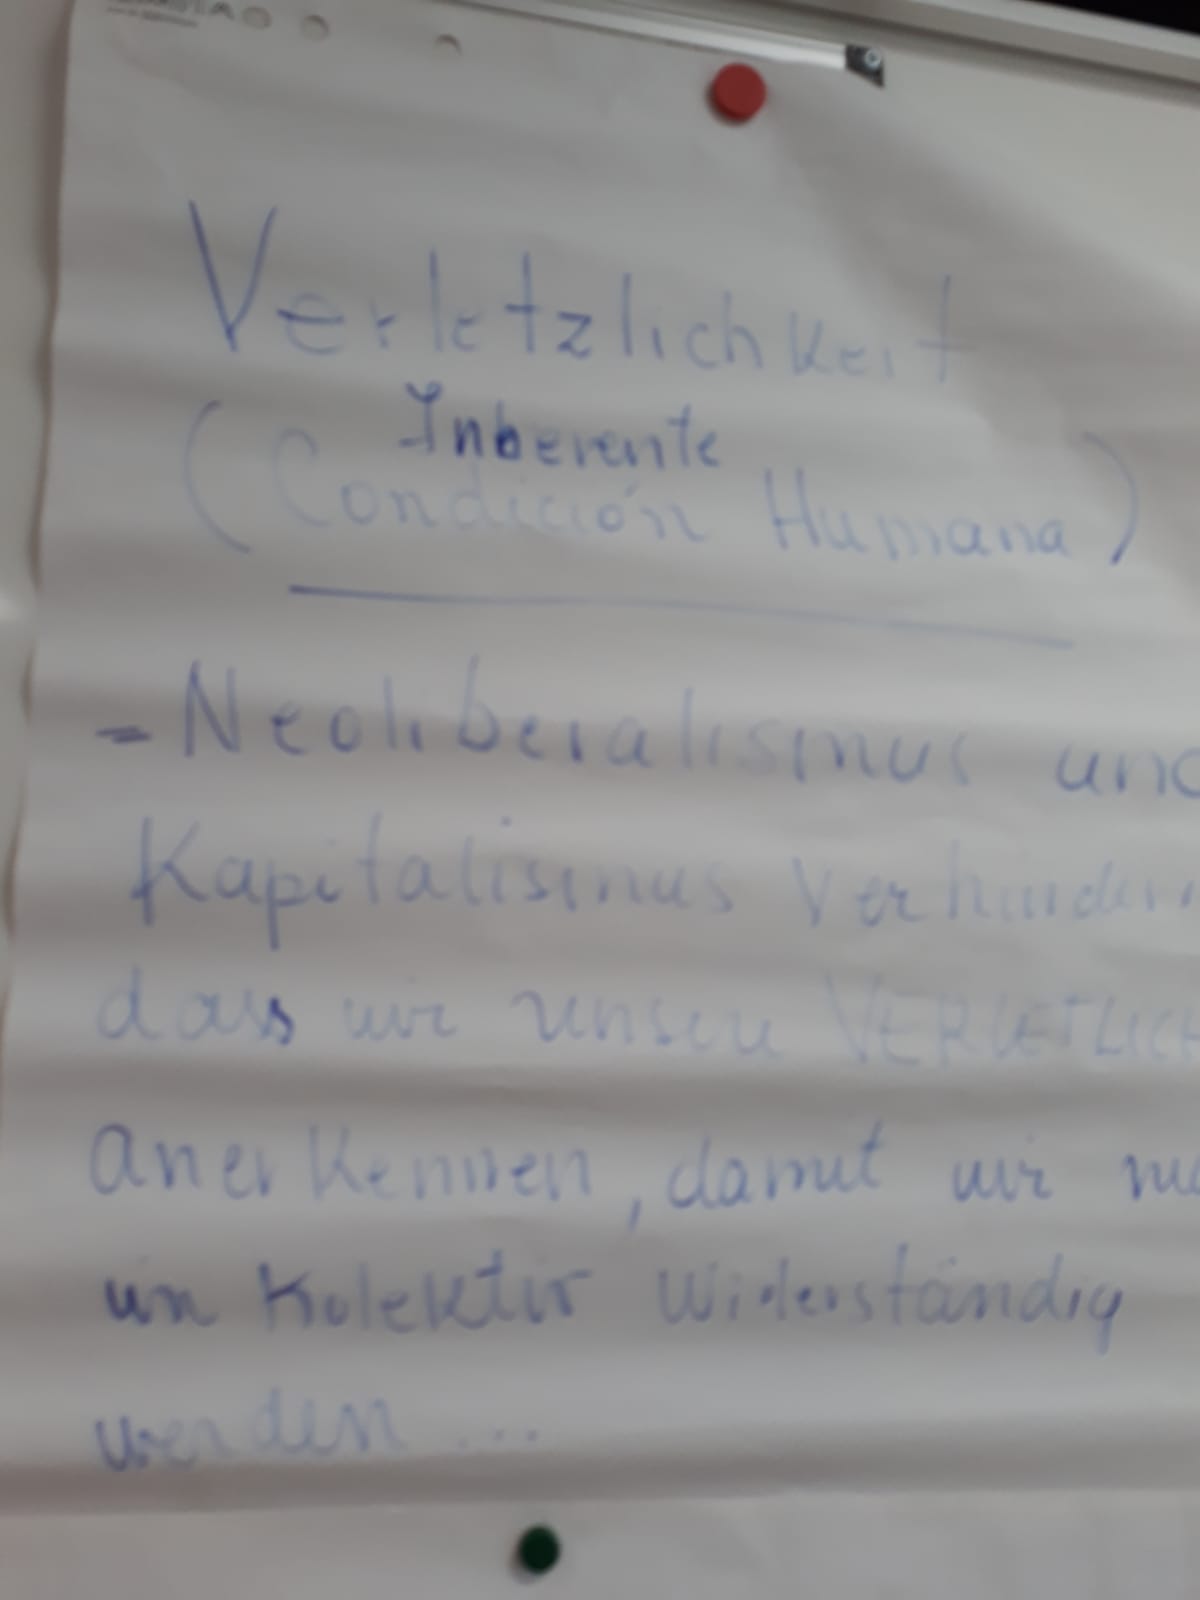 Verletzlichkeit
Inherente
(Condición Humana)
- Neoliberalismus und
Kapitalismus verhindern
dass wir unsere VERLETLICH
anerkennen, damit wir
im Kolektiv Widerständig
werden ...